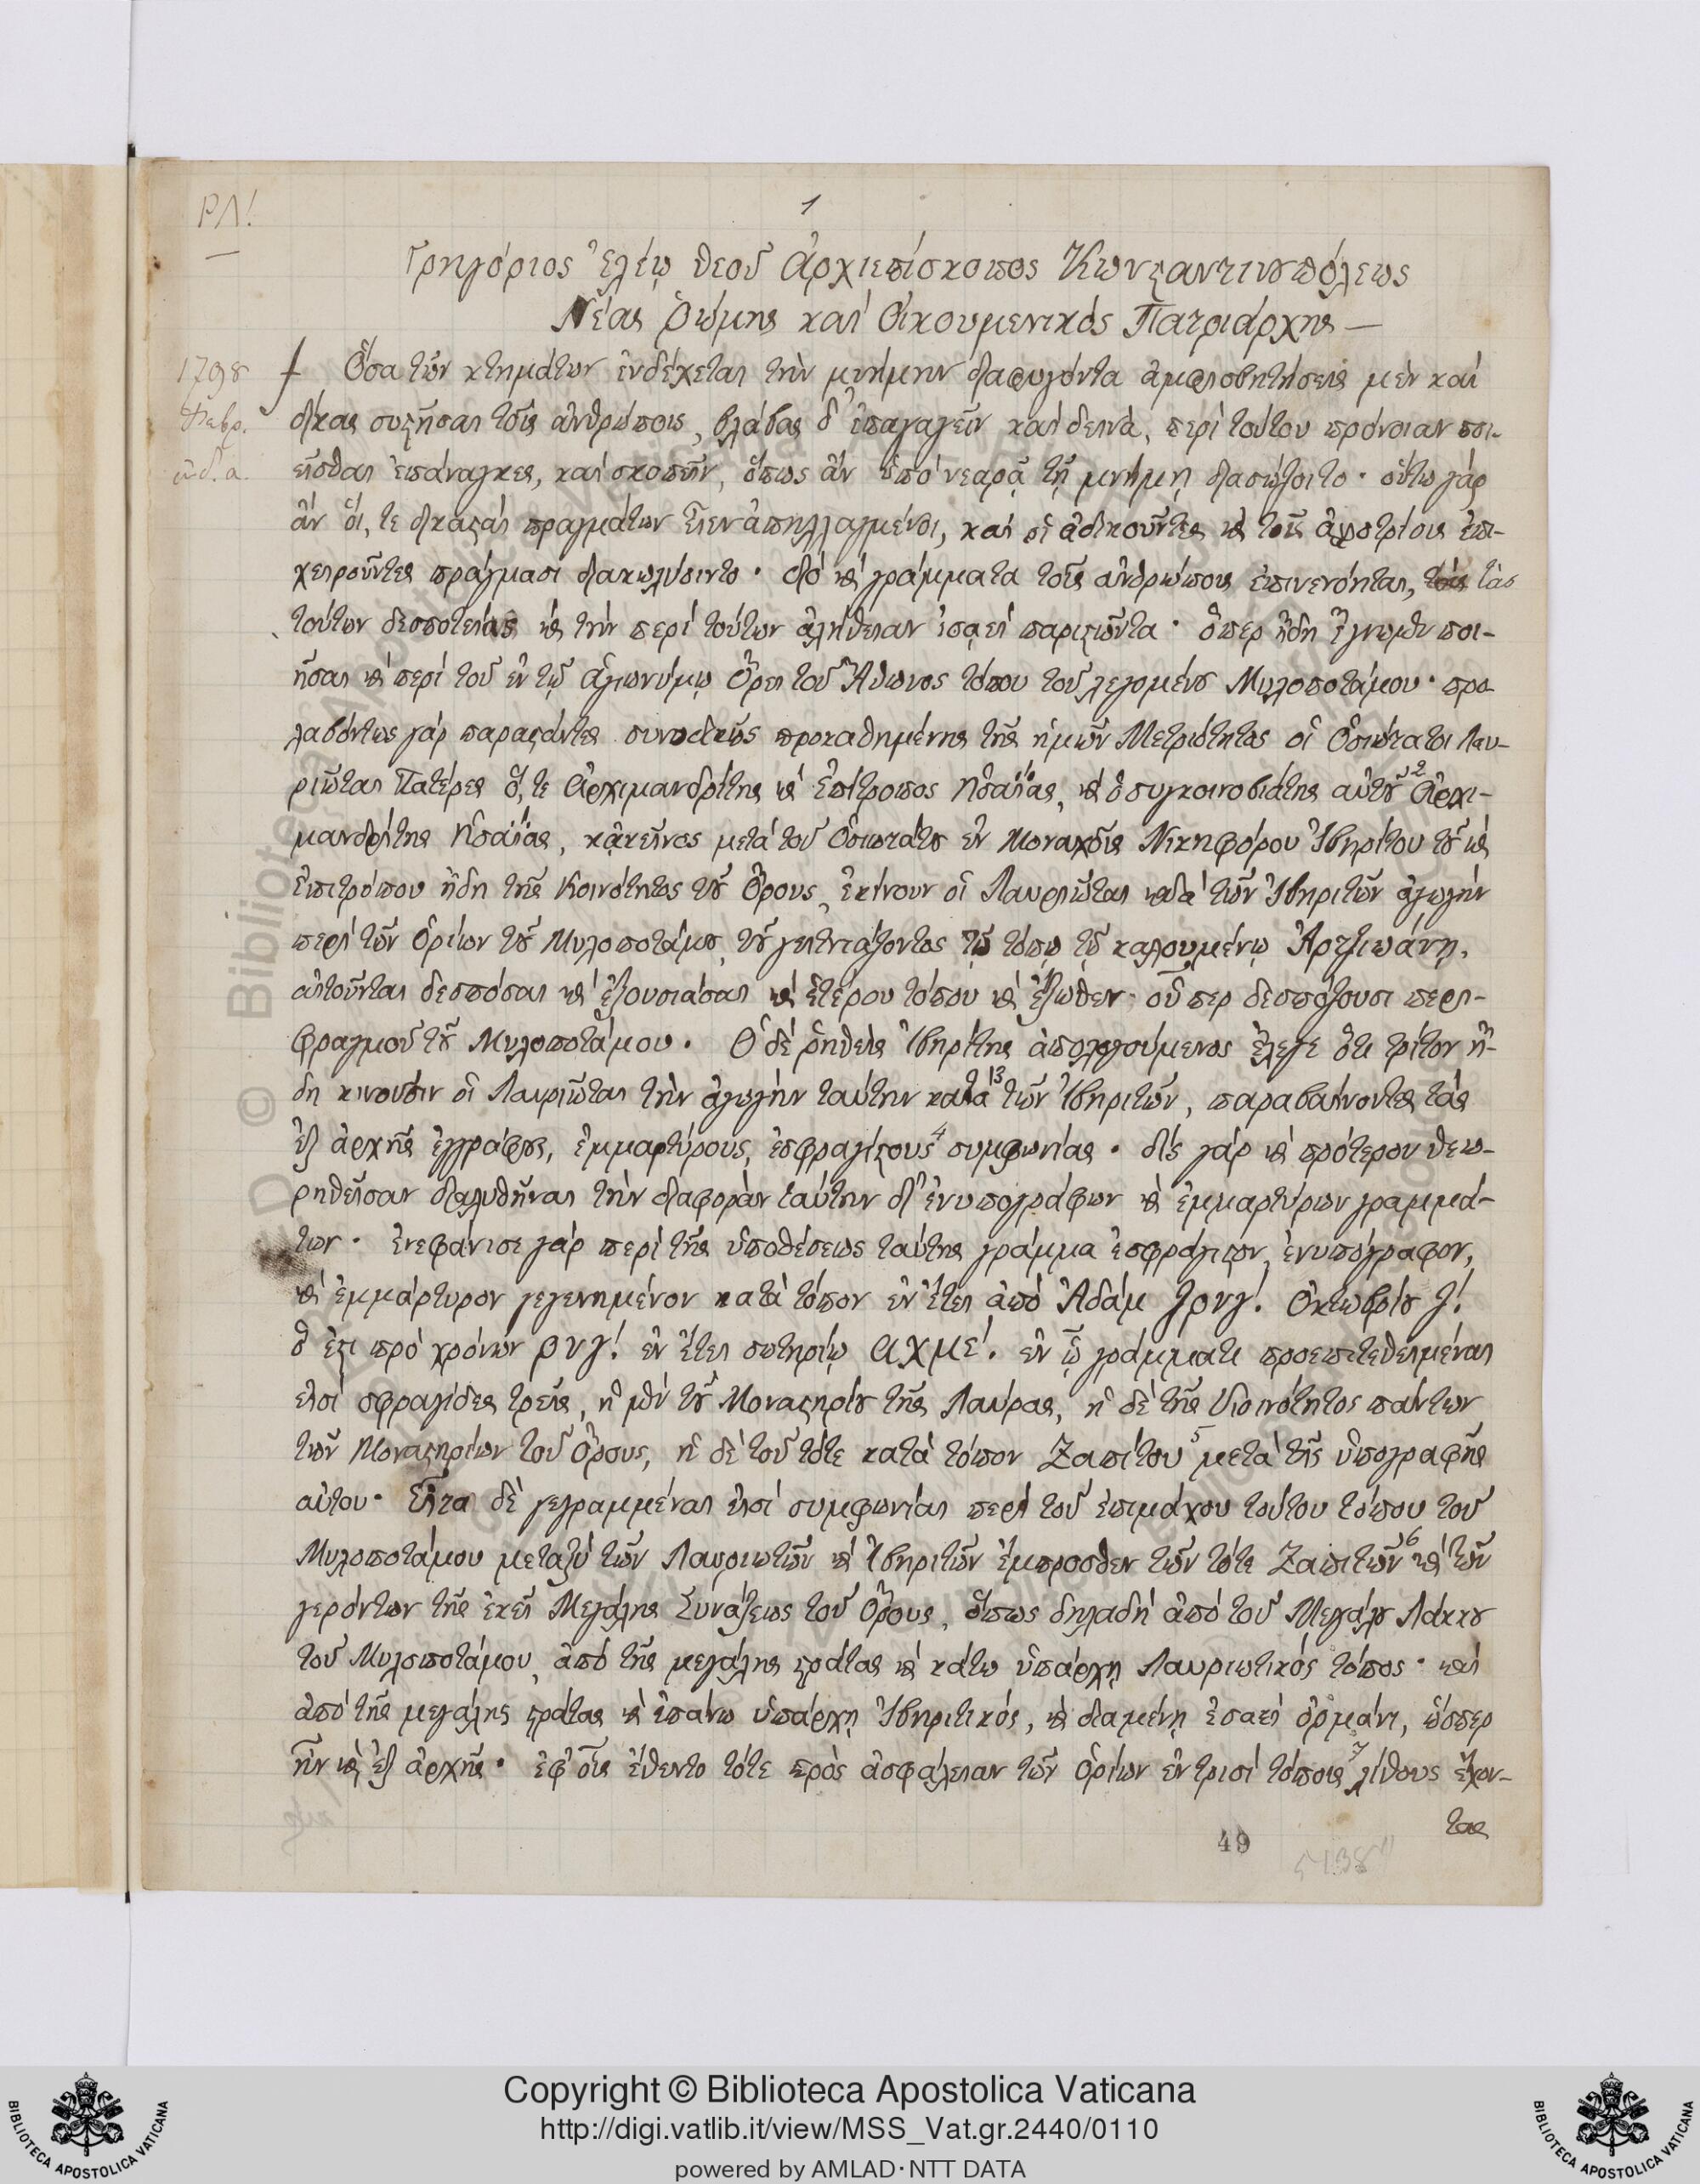 ΡΛ!
1
Γρηγόριος ἐλέῳ θεοῦ Ἀρχιεπίσκοπος Κωνϛαντινȣπόλεως
Νέας Ῥώμης καὶ Οἰκουμενικός Πατριάρχης —
1798
Φεβρ.
ἰνδ. α.
Ὅσα τῶν κτημάτων ἐνδέχεται τὴν μνήμην διαφυγόντα ἀμφισβητήσεις μὲν καὶ
δίκας συϛῆσαι τοῖς ἀνθρώποις, βλάβας δ' ἐπαγαγεῖν καὶ δεινὰ, περὶ τούτου πρόνοιαν ποι-
εῖσθαι ἐπάναγκες, καὶ σκοπεῖν, ὅπως ἂν ὑπὸ νεαρᾷ τῇ μνήμῃ διασώζοιτο· οὕτω γάρ
ἂν οἵ, τε δικαϛαὶ πραγμάτων εἶεν ἀπηλλαγμένοι, καὶ οἱ ἀδικοῦντες ϗ τοῖς ἀλλοτρίοις ἐπι-
χειροῦντες πράγμασι διακωλύοιντο· διό ϗ γράμματα τοῖς ἀνθρώποις ἐπινενόηται, τὰς
τούτων δεσποτείας ϗ τὴν περὶ τούτων ἀλήθειαν ἰσαεί παριϛῶντα· ὅπερ ἤδη ἔγνωμεν ποι-
ῆσαι ϗ περὶ τοῦ ἐν τῷ ἁγιωνύμῳ Ὄρει τοῦ Ἄθωνος τόπου τοῦ λεγομένȣ Μυλοποτάμου· προ-
λαβόντως γάρ παραϛάντες συνοδικῶς προκαθημένης τῆς ἡμῶν Μετριότητος οἱ Ὁσιώτατοι Λαυ-
ριῶται Πατέρες ὅ, τε Ἀρχιμανδρίτης ϗ Ἐπίτροπος Ἡσαΐας, ϗ ὁ συγκοινοβιάτης αὐτȣ 2 Ἀρχι-
μανδρίτης Ἡσαΐας, κἀκεῖνος μετὰ τοῦ Ὁσιωτάτȣ ἐν Μοναχοῖς Νικηφόρου Ἰβηρίτου τȣ ϗ
ἐπιτρόπου ἤδη τῆς Κοινότητος τȣ Ὄρους, ἐκίνουν οἱ Λαυριῶται κατὰ τῶν Ἰβηριτῶν ἀγωγὴν
περὶ τῶν ὁρίων τȣ Μυλοποτάμȣ, τȣ γειτνιάζοντος τῷ τόπῳ τῷ καλουμένῳ Ἀρτζιωάνῃ,
αἰτοῦνται δεσπόσαι ϗ ἐξουσιάσαι ϗ ἑτέρου τόπου ϗ ἔξωθεν οὗπερ δεσπόζουσι περι-
φραγμοῦ τȣ Μυλοποτάμου. Ὁ δὲ ῥηθεὶς Ἰβηρίτης ἀπολογούμενος ἔλεγε ὅτι τρίτον ἤ-
δη κινοῦσιν οἱ Λαυριῶται τὴν ἀγωγὴν ταύτην κατὰ 3 τῶν Ἰβηριτῶν, παραβαίνοντες τάς
ἐξ ἀρχῆς ἐγγράφȣς, ἐμμαρτύρους, ἐσφραγίϛους 4 συμφωνίας· δίς γάρ ϗ πρότερον θεω-
ρηθεῖσαν διαλυθῆναι τὴν διαφορὰν ταύτην δι' ἐνυπογράφων ϗ ἐμμαρτύρων γραμμά-
των· ἐνεφάνισε γάρ περὶ τῆς ὑποθέσεως ταύτης γράμμα ἐσφράγιϛον, ἐνυπόγραφον,
ϗ ἐμμάρτυρον γεγενημένον κατὰ τόπον ἐν ἔτει ἀπὸ Ἀδάμ ζρνγ! Ὀκτωβρίȣ ζ!
ὅ ἐϛι πρὸ χρόνων ρνγ! ἐν ἔτει σωτηρίῳ αχμε!. ἐν ᾧ γράμματι προσεπιτεθειμέναι
εἰσί σφραγίδες τρεῖς, ἡ μὲν τȣ Μοναϛηρίȣ τῆς Λαύρας, ἡ δὲ τῆς Κοινότητος πάντων
τῶν Μοναϛηρίων τοῦ Ὄρους, ἡ δὲ τοῦ τότε κατὰ τόπον Ζαπίτου 5 μετὰ τῆς ὑπογραφῆς
αὐτου· Εἶτα δὲ γεγραμμέναι εἰσί συμφωνίαι περὶ τοῦ ἐπιμάχου τούτου τόπου τοῦ
Μυλοποτάμου μεταξύ τῶν Λαυριωτῶν ϗ Ἰβηριτῶν ἔμπροσθεν τῶν τότε Ζαπιτῶν 6 ϗ τῶν
γερόντων τῆς ἐκεῖ Μεγάλης Συνάξεως τοῦ Ὄρους, ὅπως δηλαδή ἀπό τοῦ Μεγάλȣ Λάκκȣ
τοῦ Μυλοποτάμου, ἀπό τῆς μεγάλης ϛράτας ϗ κάτω ὑπάρχῃ Λαυριωτικός τόπος· καὶ
ἀπό τῆς μεγάλης ϛράτας ϗ ἐπάνω ὑπάρχῃ Ἰβηριτικός, ϗ διαμένῃ ἐσαεὶ ὀρμάνι, ὥσπερ
ἦν ϗ ἐξ ἀρχῆς· ἐφ' οἷς ἔθεντο τότε πρὸς ἀσφάλειαν τῶν ὁρίων ἐν τρισί τόποις 7 λίθους ἔχον-
τας
49
Copyright © Biblioteca Apostolica Vaticana
http://digi.vatlib.it/view/MSS_Vat.gr.2440/0110
powered by AMLAD·NTT DATA
BIBLIOTECA APOSTOLICA VATICANA
BIBLIOTECA APOSTOLICA VATICANA